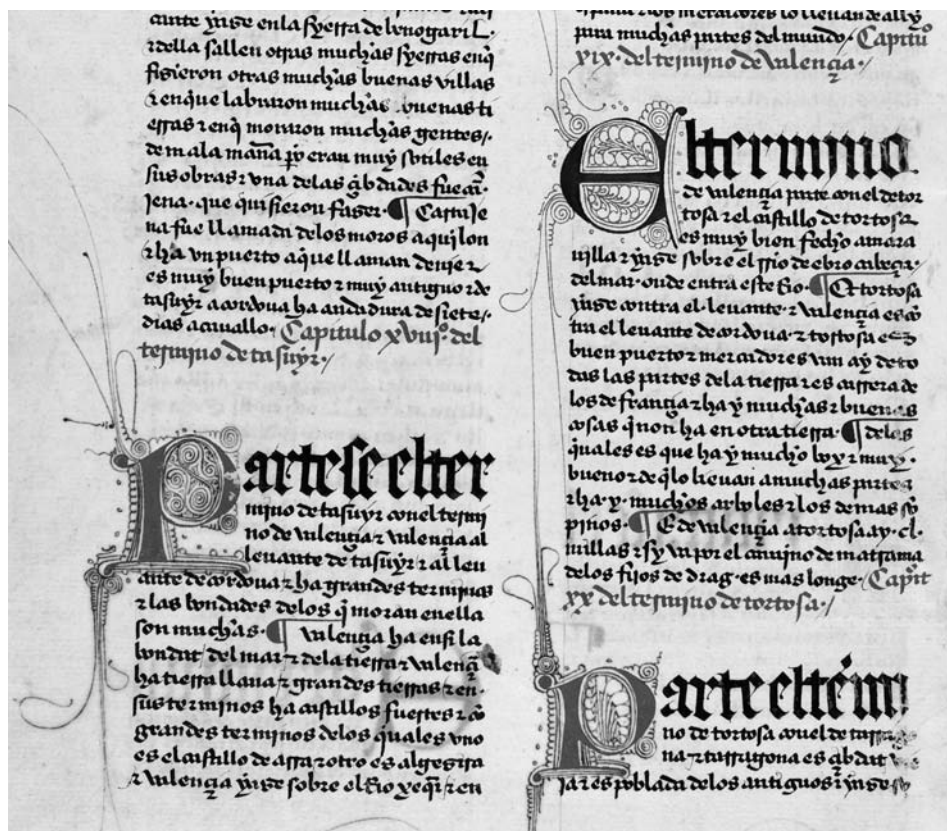 cante yase en la syerra de benogaril.
r della sallen otras muchas syerras enq̃
fisieron otras muchas buenas villas
r en que labraron muchas buenas ti
erras r enq̃ moraron muchas gentes.
de mala mañā po eran muy sotiles en
sus obras r vna delas çibdades fue
que quisieron faser. ¶
na fue llamada delos moros a quilon
r ha vn puerto a que llaman
es muy buen puerto r muy antiguo r de
tasuyr a cordoua ha andadura de siete.
dias a cauallo. Capitulo xviijº. del
termino de tasuyr./
Partese el ter
mino de tasuyr con el termi
no de valençia r valençia al
leuante de tasuyr r al leu
ante de cordoua r ha grandes terminos
r las bondades delos q̃ moran en ella
son muchas. ¶ valençia ha en si la
bondat del mar r dela tierra r valenã
ha tierra llana r grandes tierras r en.
sus terminos ha castillos fuertes r cõ
grandes terminos delos quales vno
es el castillo de r otro es algesira
r valençia yase sobre el Rio r en
los mercadores lo lieuan de ally
para muchas partes del mundo. Capituº
xix. del termino de valençia./
El termino.
de valençia parte con el de tor
tosa r el castillo de tortosa
es muy bien fecho a mara
uilla r yase sobre el rrio de ebro
del mar. onde entra este Rio. ¶ Et tortosa
yase contra el leuante. r valençia es cõ
tra el leuante de cordoua. r tortosa es
buen puerto r mercadores van ay de to
das las partes dela tierra r es carrera de
los de françia r ha y muchas r buenas
cosas q̃ non ha en otra tierra. ¶ delos
quales es que ha y mucho box r muy.
bueno r de q̃lo lieuan a muchas partes
r ha. y. muchos arboles r los demas sõ
pinos. ¶ E de valençia a tortosa ay. cl.
millas r sy va por el camino de
delos fijos de drag. es mas longe. Capit
xx del termino de tortosa./
Parte el tẽmi
no de tortosa con el de
na r tarragona es çibdat
r es poblada delos antiguos r yase